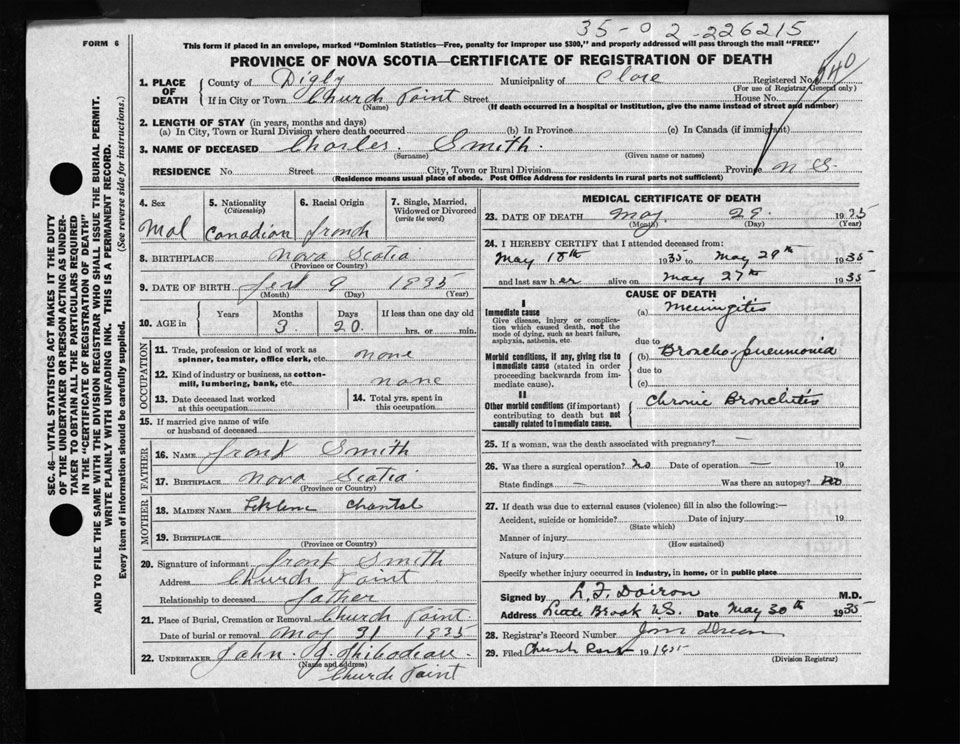 35-02-226215
FORM 6
This form if placed in an envelope, marked "Dominion Statistics—Free, penalty for improper use $300," and properly addressed will pass through the mail "FREE"
PROVINCE OF NOVA SCOTIA—CERTIFICATE OF REGISTRATION OF DEATH
SEC. 46—VITAL STATISTICS ACT MAKES IT THE DUTY
OF THE UNDERTAKER OR PERSON ACTING AS UNDER-
TAKER TO OBTAIN ALL THE PARTICULARS REQUIRED
IN THE "CERTIFICATE OF REGISTRATION OF DEATH"
AND TO FILE THE SAME WITH THE DIVISION REGISTRAR WHO SHALL ISSUE THE BURIAL PERMIT.
WRITE PLAINLY WITH UNFADING INK. THIS IS A PERMANENT RECORD.
Every item of information should be carefully supplied. (See reverse side for instructions.)
1. PLACE OF DEATH County of Digby Municipality of Clare Registered No.
(For use of Registrar General only)
If in City or Town Church Point Street House No.
(Name) (If death occurred in a hospital or institution, give the name instead of street and number)
2. LENGTH OF STAY (in years, months and days)
(a) In City, Town or Rural Division where death occurred (b) In Province (c) In Canada (if immigrant)
3. NAME OF DECEASED Charles Smith.
(Surname) (Given name or names)
RESIDENCE No. Street City, Town or Rural Division Province N S.
(Residence means usual place of abode. Post Office Address for residents in rural parts not sufficient)
4. Sex 5. Nationality (Citizenship) 6. Racial Origin 7. Single, Married, Widowed or Divorced (write the word)
Mal Canadian french
8. BIRTHPLACE Nova Scotia
(Province or Country)
9. DATE OF BIRTH 9 1935
(Month) (Day) (Year)
10. AGE in Years Months Days If less than one day old
3 20 hrs. or min.
OCCUPATION
11. Trade, profession or kind of work as spinner, teamster, office clerk, etc. none
12. Kind of industry or business, as cotton-mill, lumbering, bank, etc. none
13. Date deceased last worked at this occupation 14. Total yrs. spent in this occupation
15. If married give name of wife or husband of deceased
FATHER
16. NAME frank Smith
17. BIRTHPLACE Nova Scotia
(Province or Country)
MOTHER
18. MAIDEN NAME
19. BIRTHPLACE
(Province or Country)
20. Signature of informant frank Smith
Address Church Point
Relationship to deceased father
21. Place of Burial, Cremation or Removal Church Point.
Date of burial or removal May 31 1935
22. UNDERTAKER John. Thibodeau.
(Name and address)
Church Point
MEDICAL CERTIFICATE OF DEATH
23. DATE OF DEATH May 29. 1935
(Month) (Day) (Year)
24. I HEREBY CERTIFY that I attended deceased from:
May 18th 1935 to May 29th 1935
and last saw her alive on May 27th 1935
CAUSE OF DEATH
I
Immediate cause
Give disease, injury or complication which caused death, not the mode of dying, such as heart failure, asphyxia, asthenia, etc.
(a) Meningitis
due to
Morbid conditions, if any, giving rise to immediate cause (stated in order proceeding backwards from immediate cause).
(b) Broncho-pneumonia
due to
(c)
II
Other morbid conditions (if important) contributing to death but not causally related to immediate cause.
Chronic Bronchitis
25. If a woman, was the death associated with pregnancy? —
26. Was there a surgical operation? no Date of operation — 19
State findings — Was there an autopsy? no
27. If death was due to external causes (violence) fill in also the following:—
Accident, suicide or homicide? Date of injury 19
(State which)
Manner of injury
(How sustained)
Nature of injury
Specify whether injury occurred in industry, in home, or in public place
Signed by Doiron M.D.
Address Little Brook N.S. Date May 30th 1935
28. Registrar's Record Number
29. Filed Church Point 19
(Division Registrar)